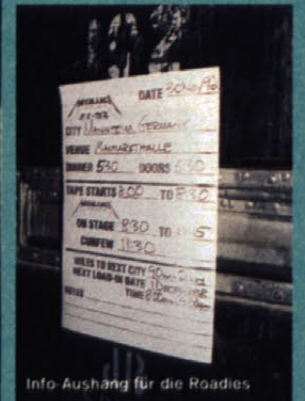 METALLICA
DATE
CITY MANNHEIM, GERMANY
VENUE MAIMARKTHALLE
DINNER 530 DOORS 630
TAPE STARTS 8:00 TO 8:30
METALLICA
ON STAGE 830 TO
CURFEW 11:30
MILES TO NEXT CITY
NEXT LOAD-IN DATE
NOTES TIME
Info-Aushang für die Roadies